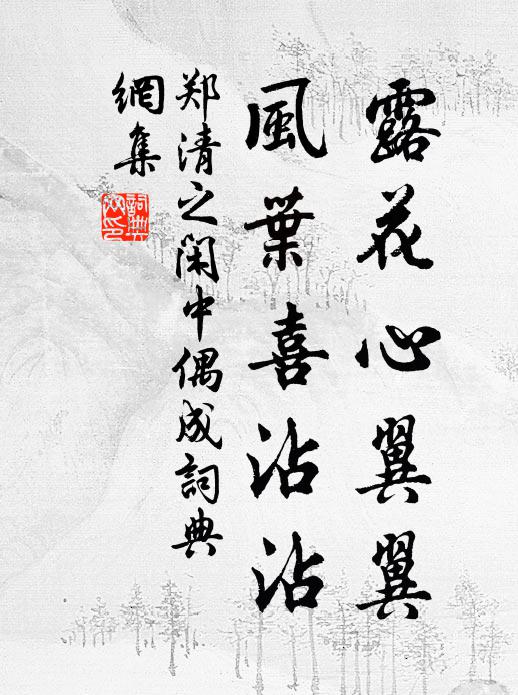 露花心翼翼
風葉喜沾沾
郑清之闲中偶成詞典
網集
詞典
网印